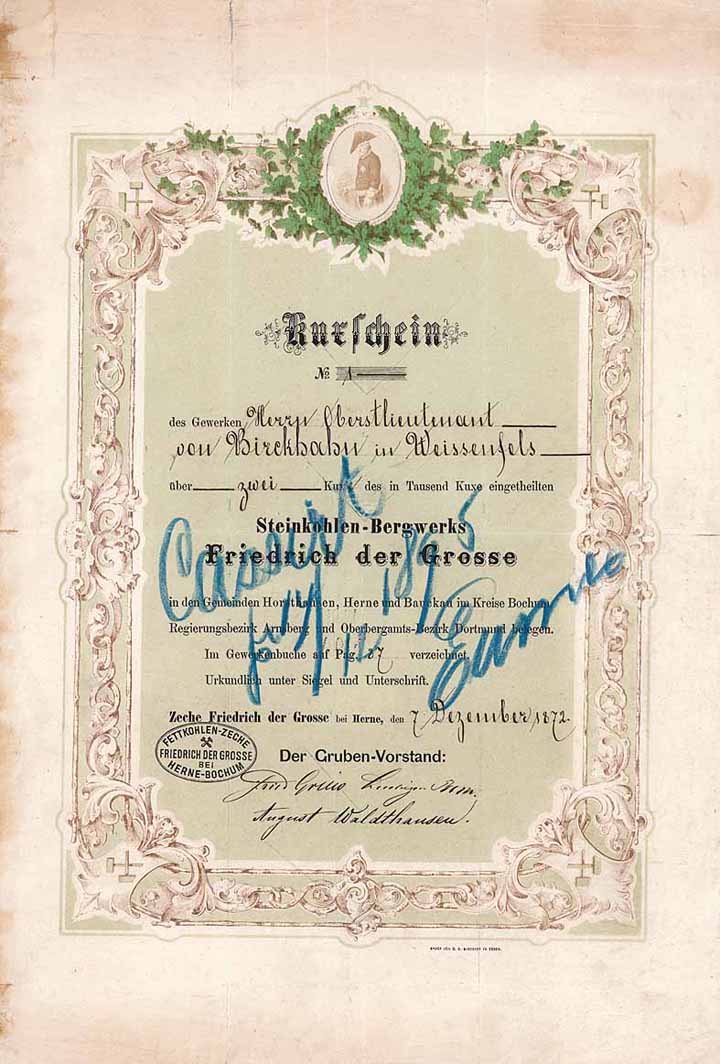 Kuxschein
№ 1
des Gewerken Herrn Oberstlieutenant
von Birckhahn in Weissenfels
über zwei Kuxe des in Tausend Kuxe eingetheilten
Steinkohlen-Bergwerks
Friedrich der Grosse
in den Gemeinden Horsthausen, Herne und Bauckau im Kreise Bochum
Regierungsbezirk Arnsberg und Oberbergamts-Bezirk Dortmund belegen.
Im Gewerkenbuche auf Pag. 87 verzeichnet.
Urkundlich unter Siegel und Unterschrift.
Cassirt
1895
Zeche Friedrich der Grosse bei Herne, den 7 Dezember 1872.
FETTKOHLEN-ZECHE
FRIEDRICH DER GROSSE
BEI
HERNE-BOCHUM
Der Gruben-Vorstand:
Fried Grillo
August Waldthausen.